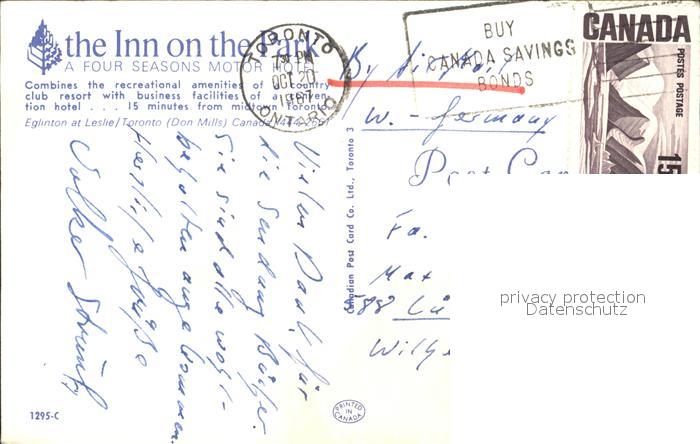 the Inn on the Park
A FOUR SEASONS MOTOR HOTEL
Combines the recreational amenities of a country
club resort with business facilities of a conven-
tion hotel . . . 15 minutes from midtown Toronto.
Eglinton at Leslie/Toronto (Don Mills) Canada
TORONTO
PM
OCT 20
ONTARIO
BUY
CANADA SAVINGS
BONDS
CANADA
POSTES POSTAGE
15
By
W. - Germany
Post
Fa.
Max
588 Lü
Vielen Dank für
die Sendung Bücher.
Sie sind alle wohl-
behalten angekommen.
Herzliche Grüße
Volker
Canadian Post Card Co. Ltd., Toronto 3
privacy protection
Datenschutz
1295-C
PRINTED IN CANADA